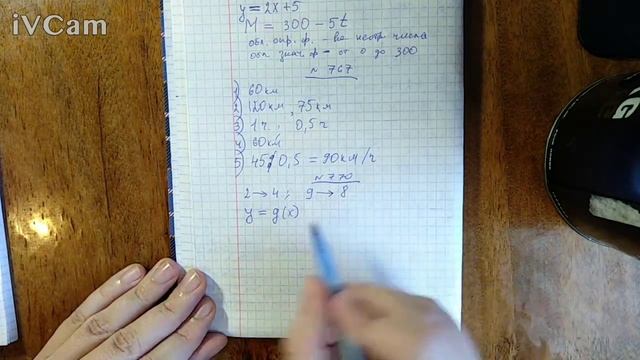 iVCam
y = 2x + 5
M = 300 - 5t
обл. опр. ф. - все неотр числа
обл знач ф - от 0 до 300
N 767
1) 60 км
2) 120 км, 75 км
3) 1 ч, 0,5 ч
4) 60 км
5) 45 / 0,5 = 90 км/ч
N 770
2 → 4 ; 9 → 8
y = g(x)